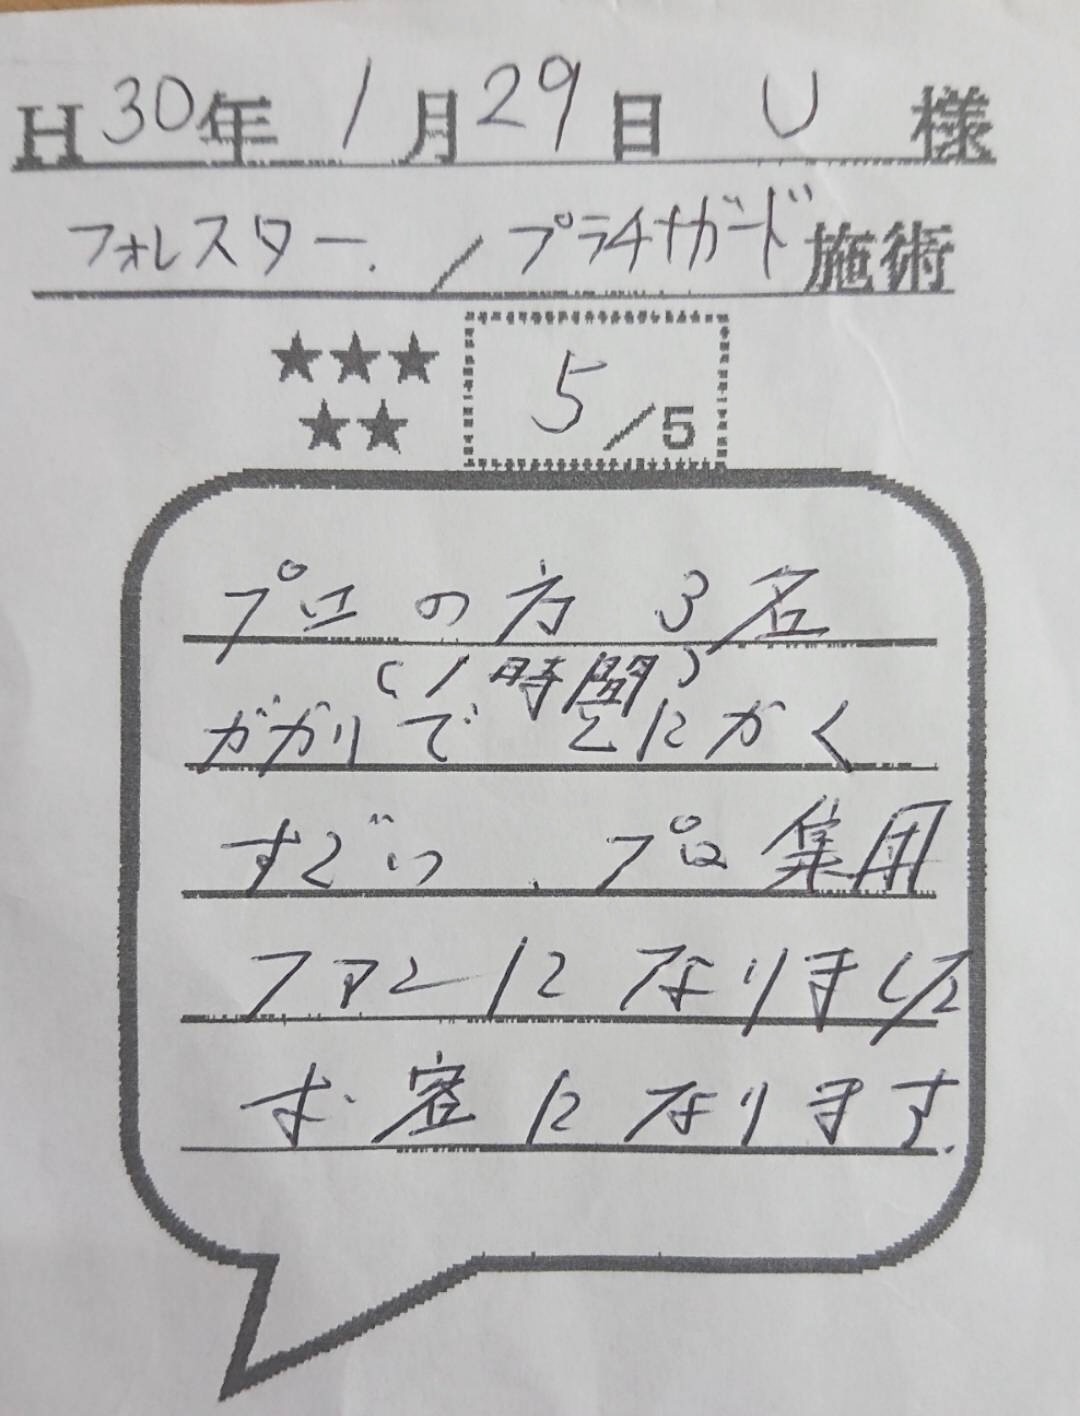 H30年1月29日 U 様
フォレスター. / プラチナガード 施術
★★★
★★
5/5
プロの方 3名
(1時間)
ががりで とにかく
すごい、プロ集団
ファンになりました
お客になります.